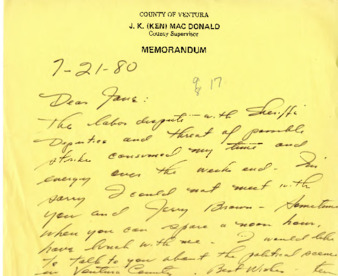 COUNTY OF VENTURA
J. K. (KEN) MAC DONALD
County Supervisor
MEMORANDUM
7-21-80
Dear Jane:
The labor dispute with Sheriff
Deputies and threat of possible
strike consumed my time and
energy over the week end. I'm
sorry I could not meet with
you and Jerry Brown - Sometime
when you can spare a noon hour,
have lunch with me. I would like
to talk to you about the political scene
in Ventura County. Best Wishes Ken